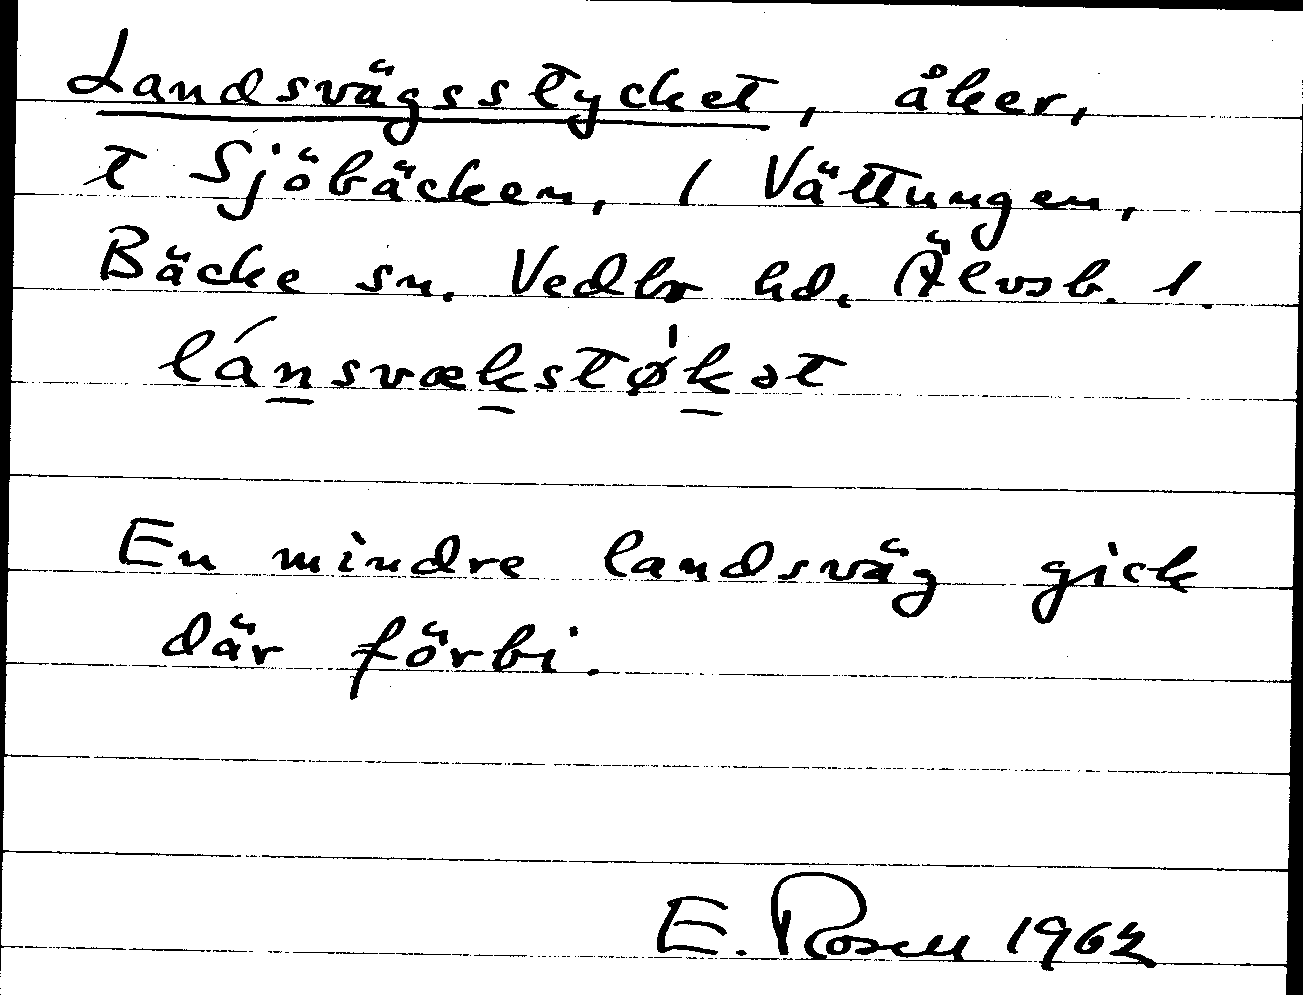 Landsvägsstycket, åker,
t Sjöbäcken, 1 Vättungen,
Bäcke sn. Vedbo hd. Älvsb. l.
lánsvækstø̍kət
En mindre landsväg gick
där förbi.
E. Rosell 1962